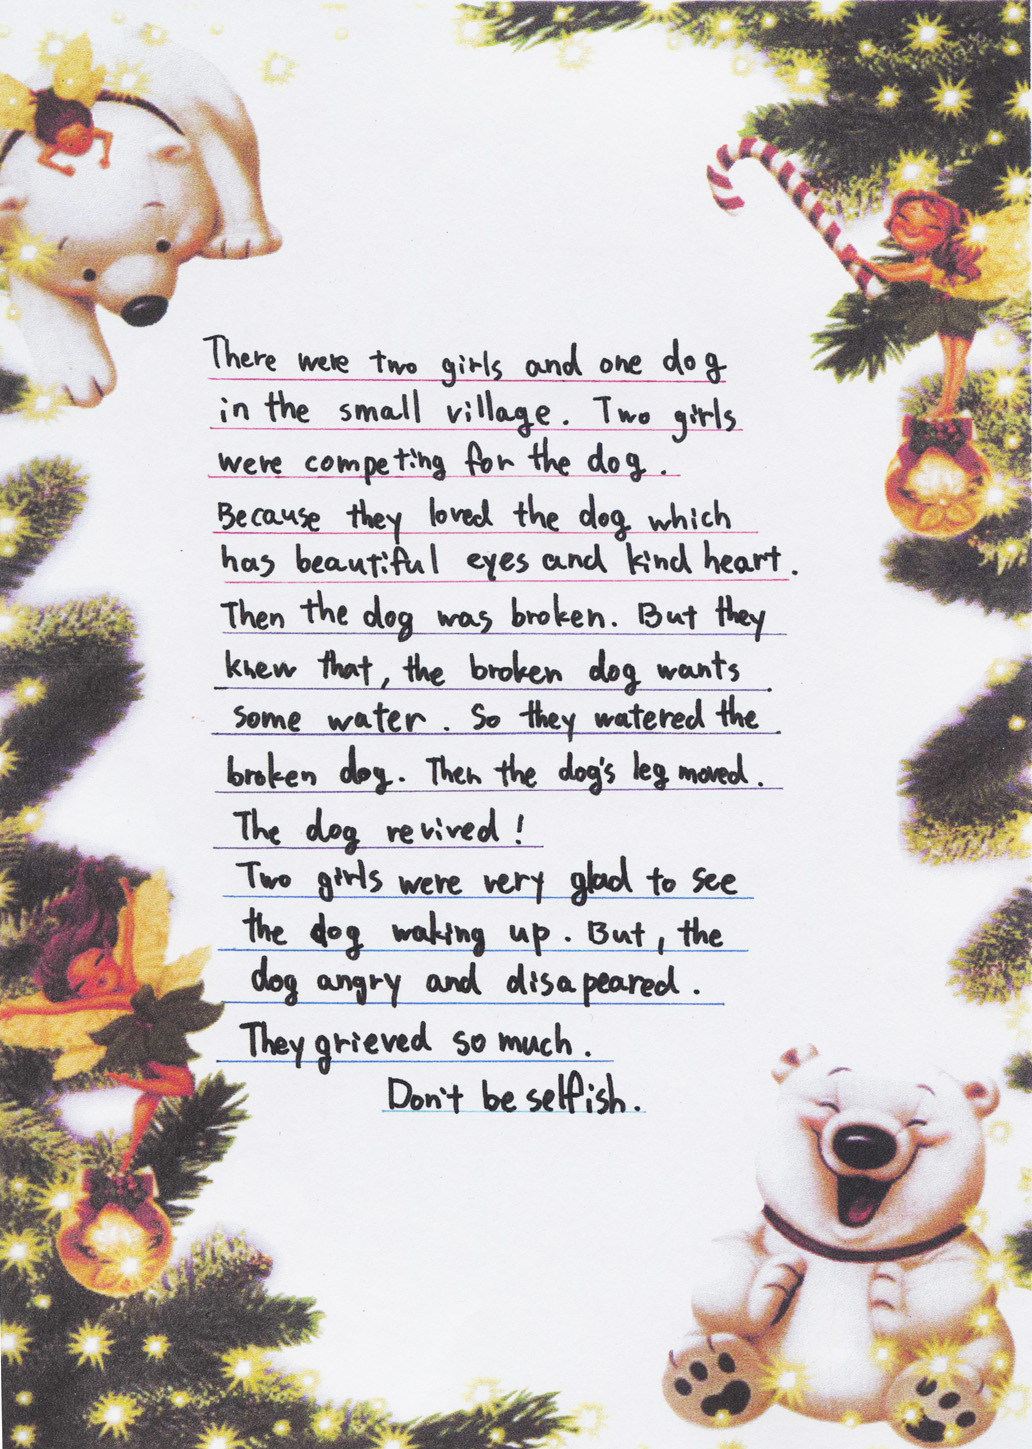 There were two girls and one dog
in the small village. Two girls
were competing for the dog.
Because they loved the dog which
has beautiful eyes and kind heart.
Then the dog was broken. But they
knew that, the broken dog wants
some water. So they watered the
broken dog. Then the dog's leg moved.
The dog revived!
Two girls were very glad to see
the dog waking up. But, the
dog angry and disapeared.
They grieved so much.
Don't be selfish.